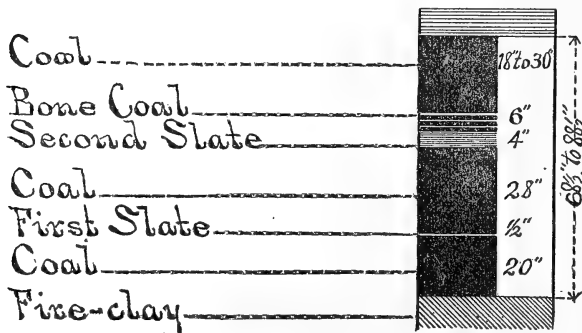 Coal 18"to30"
Bone Coal 6"
Second Slate 4"
Coal 28"
First Slate ½"
Coal 20"
Fire-clay
68½" to 88½"